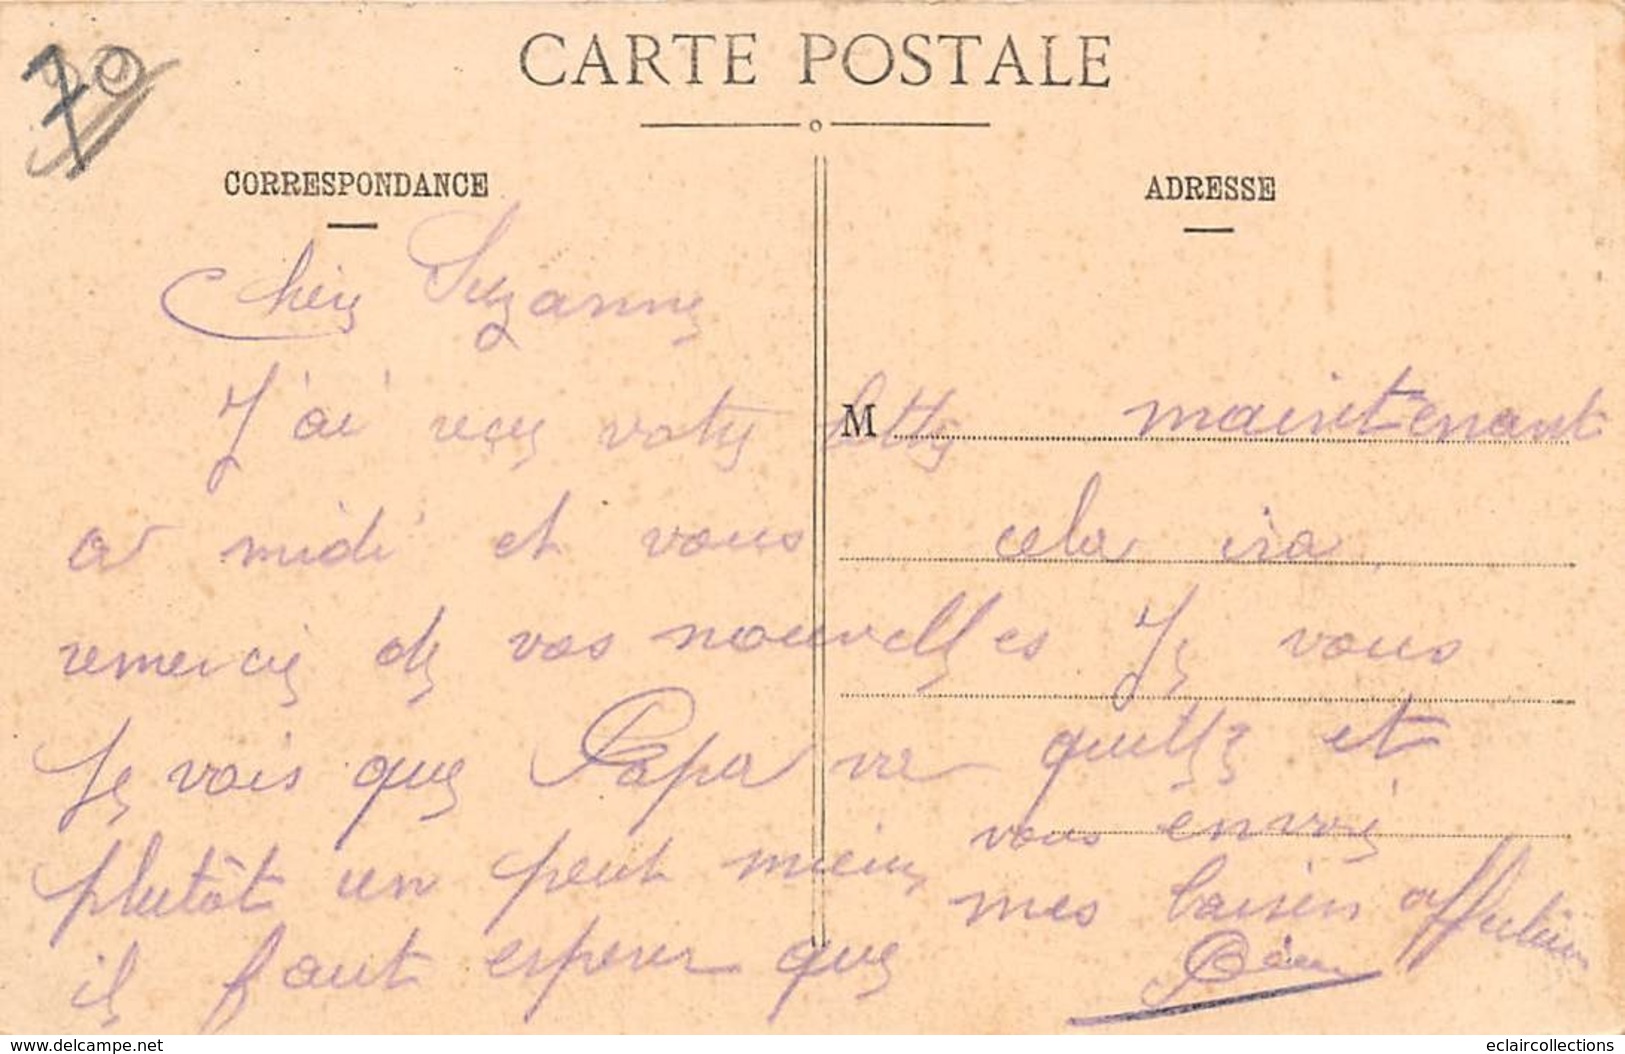 70
CARTE POSTALE
CORRESPONDANCE
ADRESSE
Chère Suzanne
J'ai reçu votre lettre
a midi et vous
remercie de vos nouvelles
Je vois que Papa va
plutôt un peut mieux
il faut esperer que
M
maintenant
cela ira
Je vous
quitte et
vous envoie
mes baisers affectueux
delcampe.net
eclaircollections